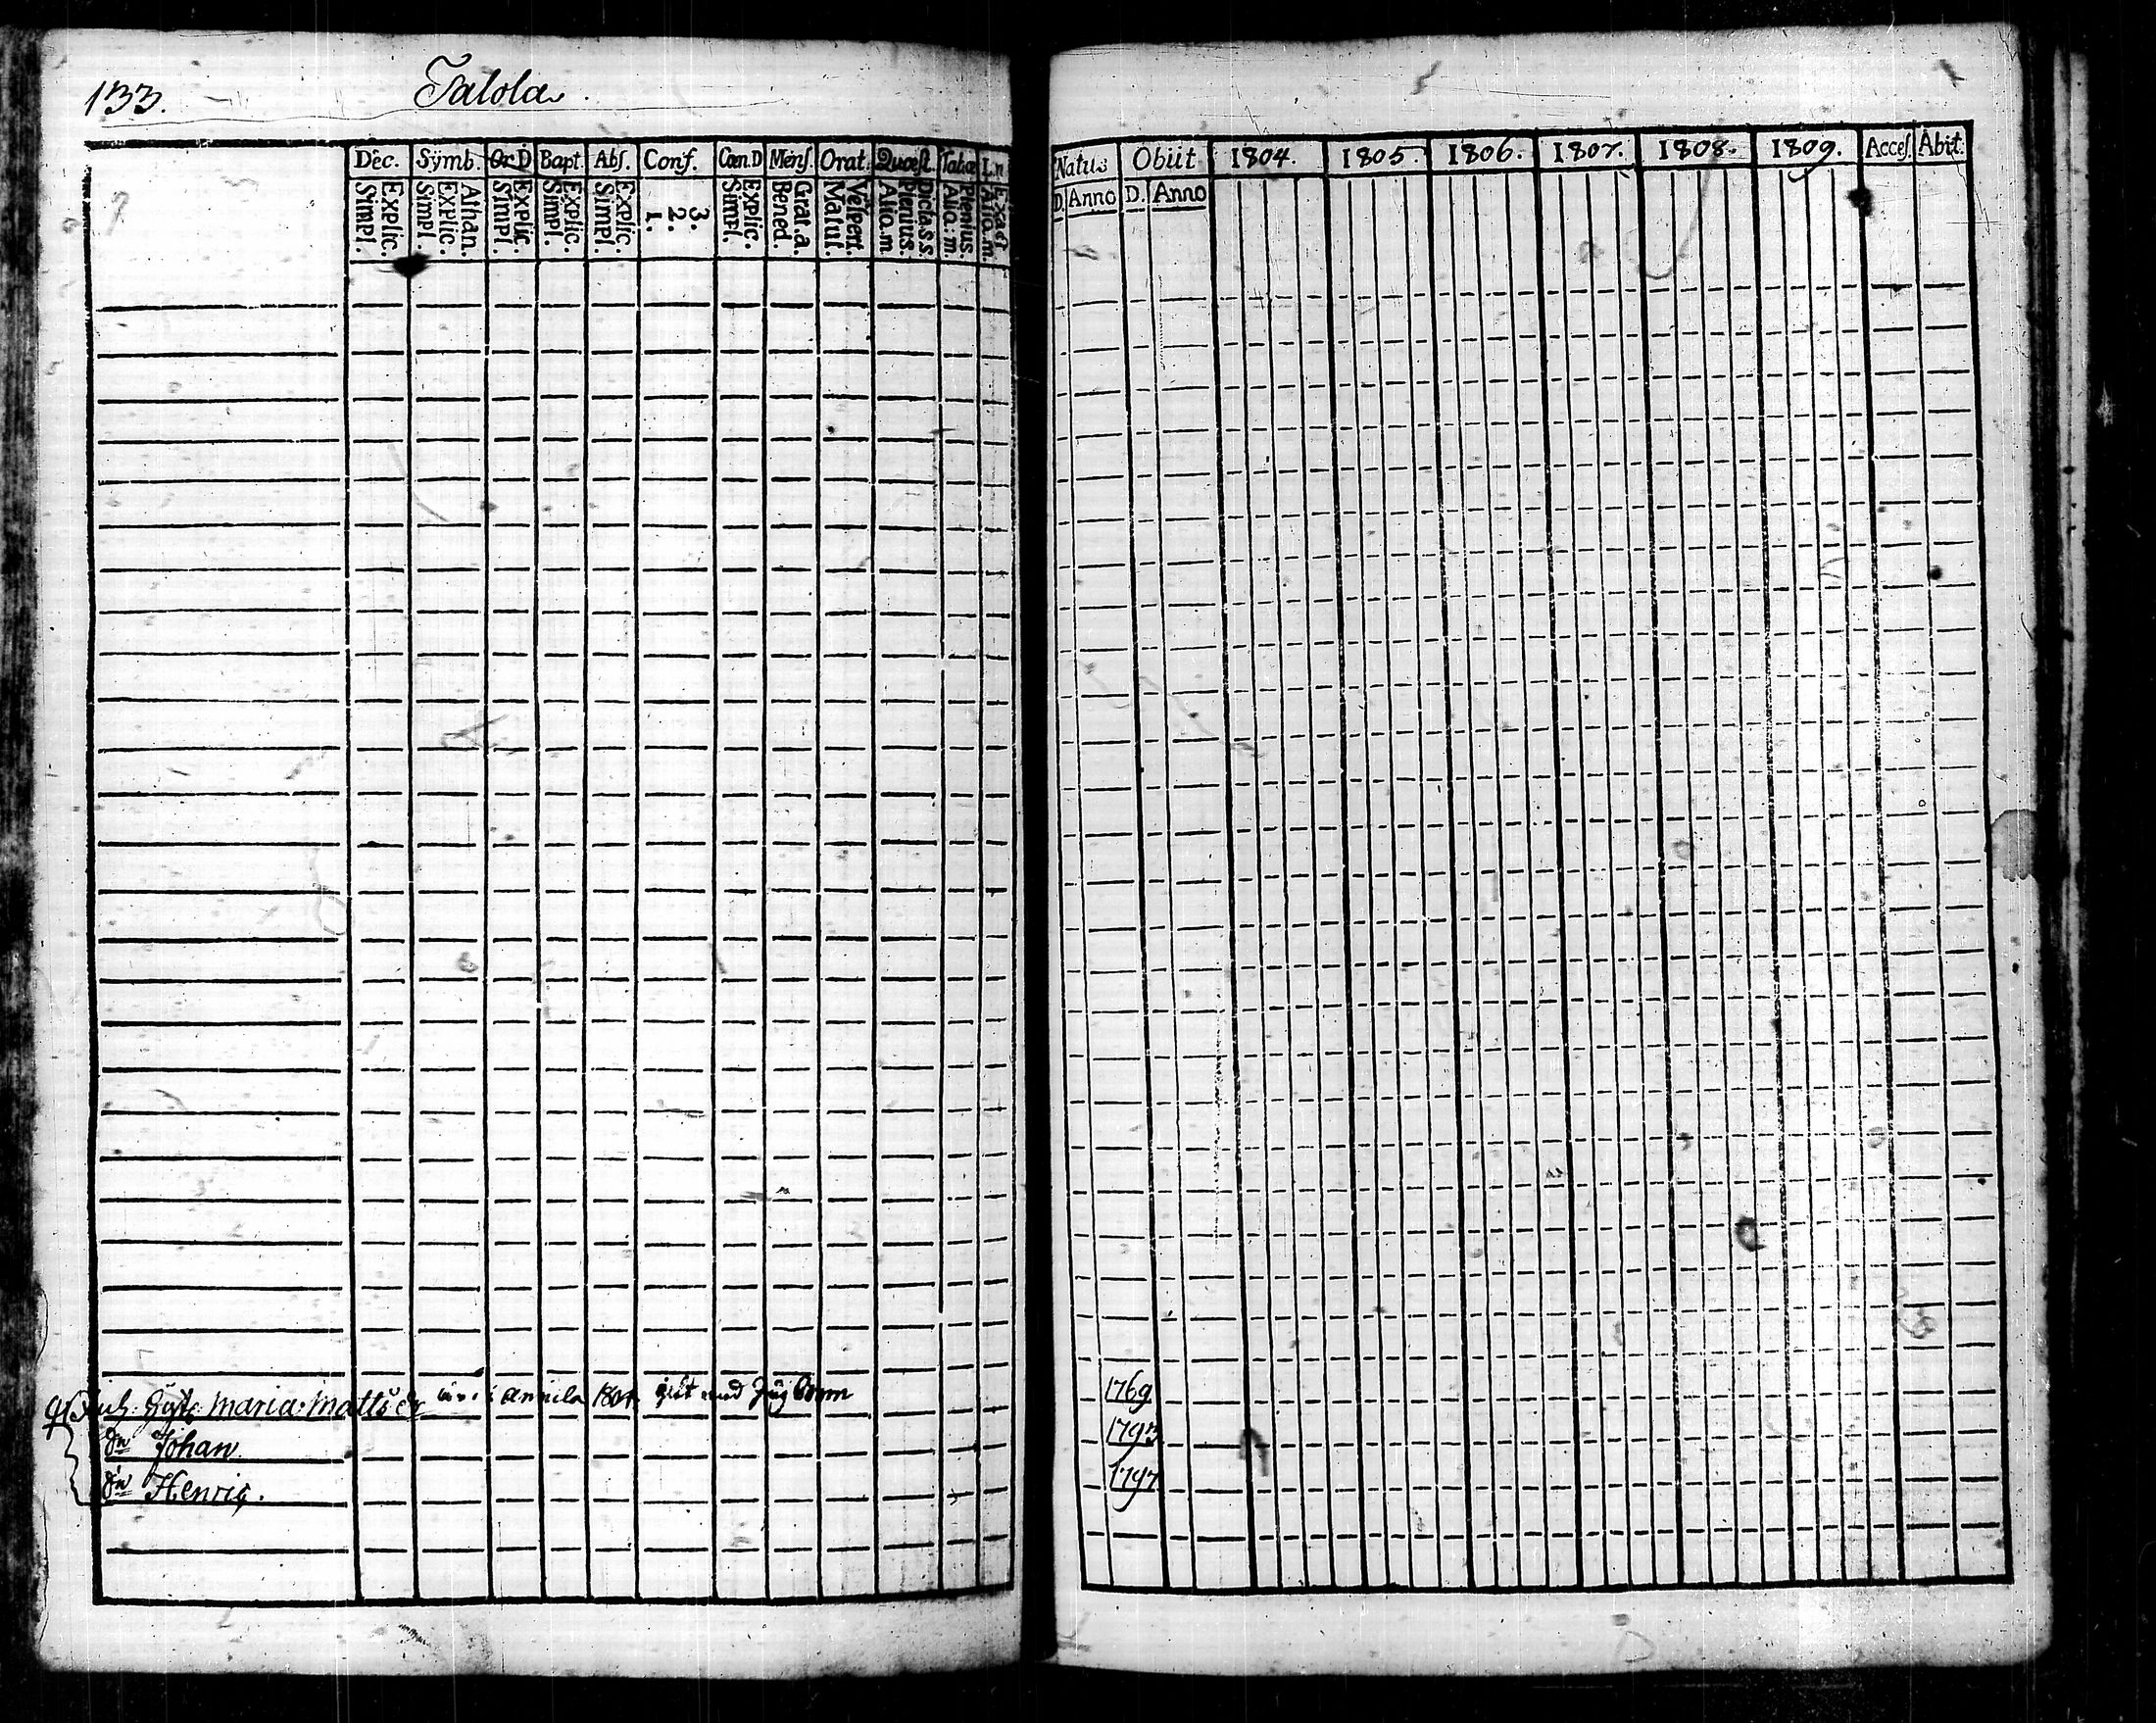 133.
Talola.
Dec. Symb. Or.D Bapt. Abſ. Conf. Cœn.D Menſ. Orat. Quæſt. Tabæ L.n
Explic. Simpl. Athan. Explic. Simpl. Explic. Simpl. Explic. Simpl. Explic. Simpl. 3. 2. 1. Explic. Simpl. Grat.a. Bened. Veſpert. Matut. Dicta.s.s. Plenius. Alio.m Plenius. Alio.m. Exact Alio.m.
Natus Obiit 1804. 1805. 1806. 1807. 1808. 1809. Acceſ. Abit.
D. Anno D. Anno
Maria Matts dr i Annila 1804 gift med 1769
dn Johan 1793
dn Henric. 1797